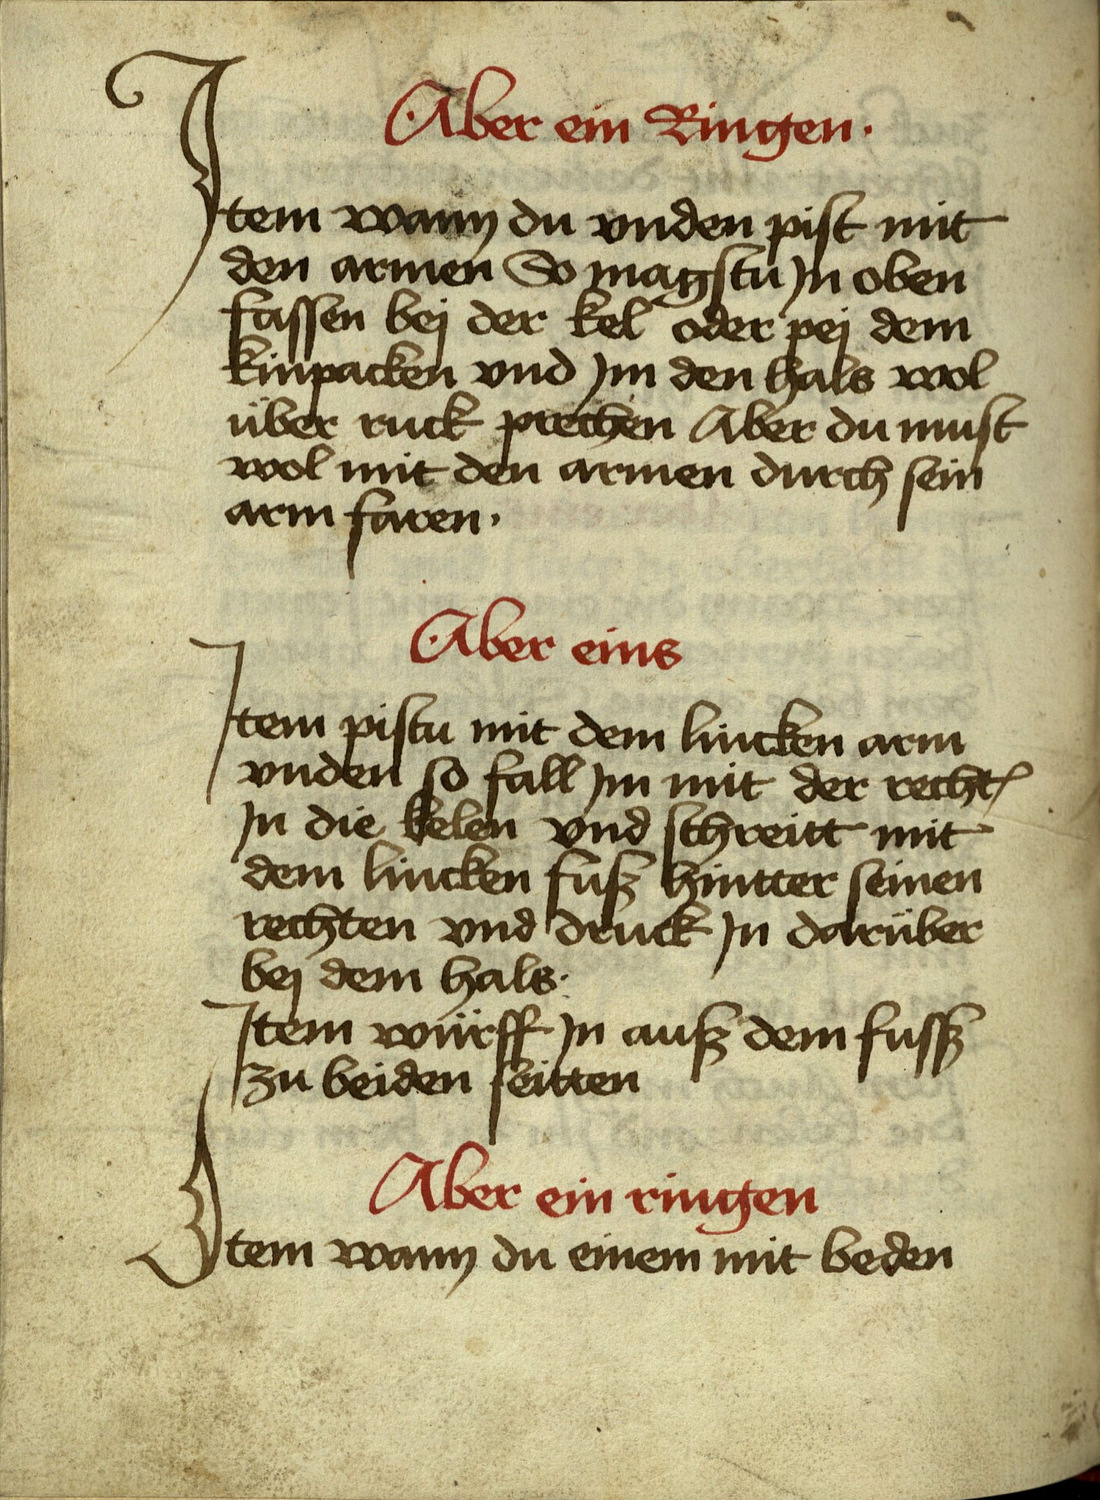 Aber ein Ringen.
Item wann du vnden pist mit
den armen So magstu Jn oben
fassen bej der kel oder pej dem
kinpacken vnd Jm den hals wol
über ruck prechen Aber du must
wol mit den armen durch sein
arm faren.
Aber eins
Item pistu mit dem lincken arm
vnden so fall Jm mit der recht
Jn die kelen vnd schreitt mit
dem lincken fuß hintter seinen
rechten vnd druck Jn darüber
bej dem hals.
Item würff Jn auß dem fusß
zu beiden seitten
Aber ein ringen
Item wann du einem mit beden